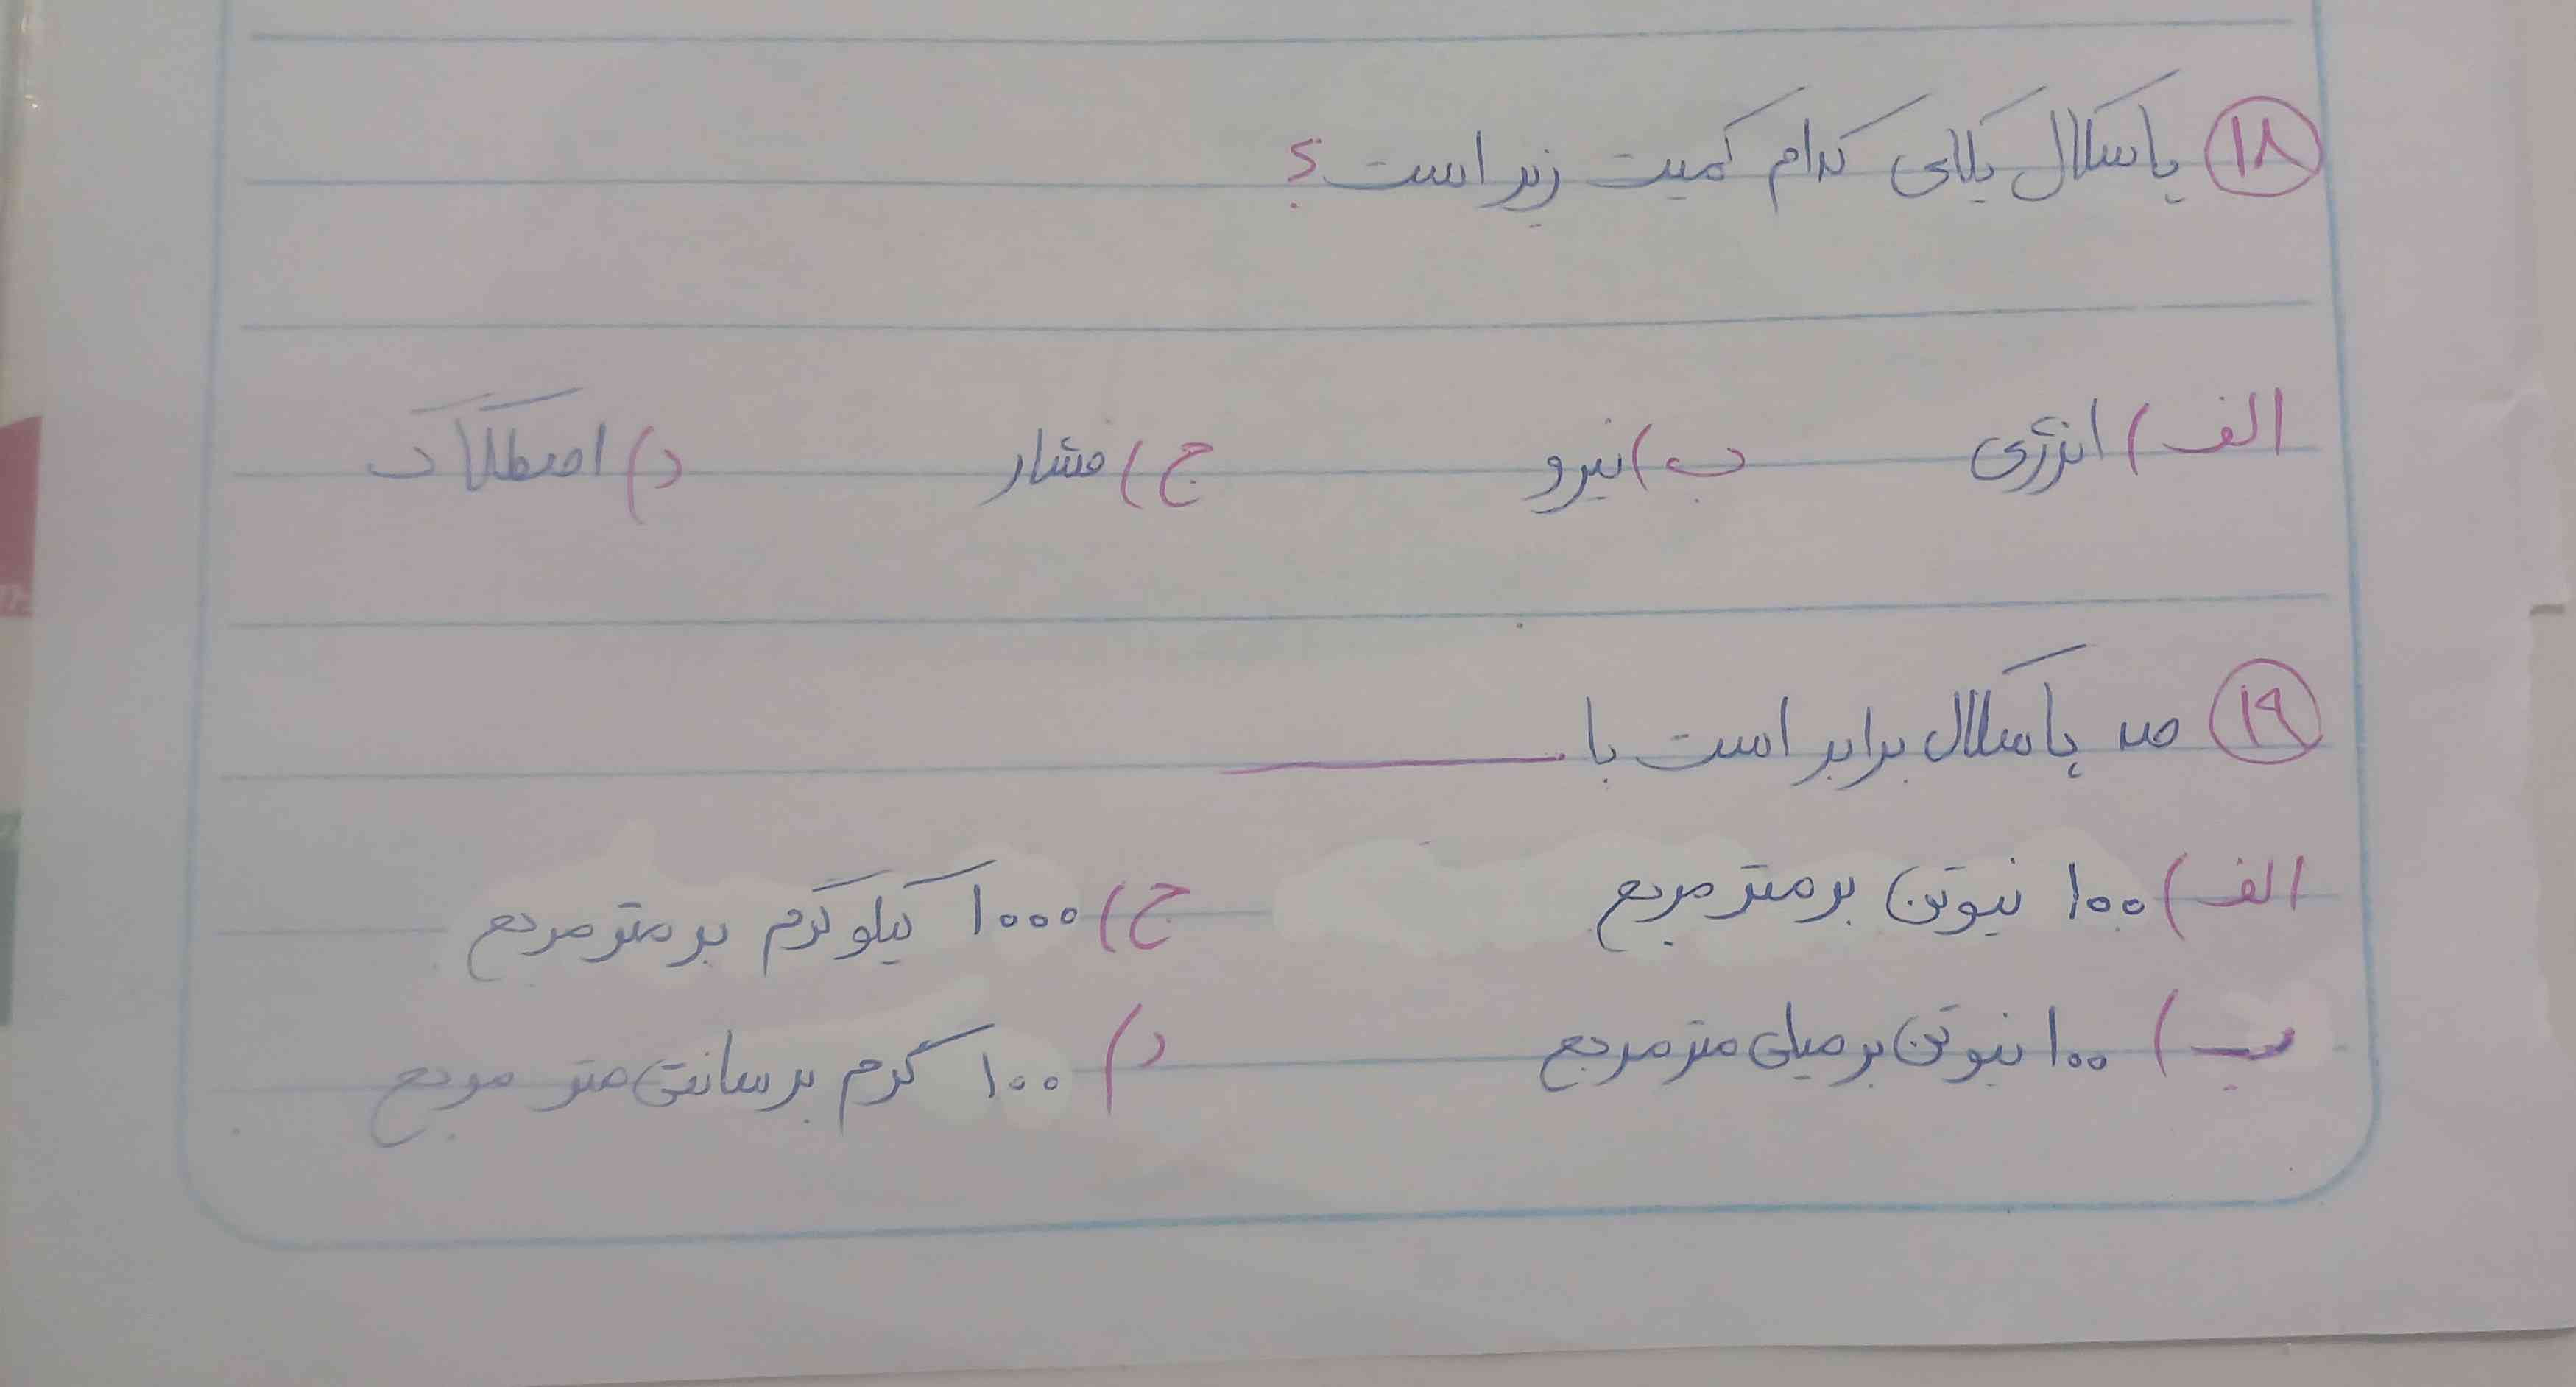 ۱۸ پاسکال یکای کدام کمیت زیر است؟
الف) انرژی ب) نیرو ج) فشار د) اصطکاک
۱۹ صد پاسکال برابر است با ______
الف) ۱۰۰ نیوتن بر متر مربع ج) ۱۰۰۰ کیلوگرم بر متر مربع
ب) ۱۰۰ نیوتن بر میلی متر مربع د) ۱۰۰ گرم بر سانتی متر مربع